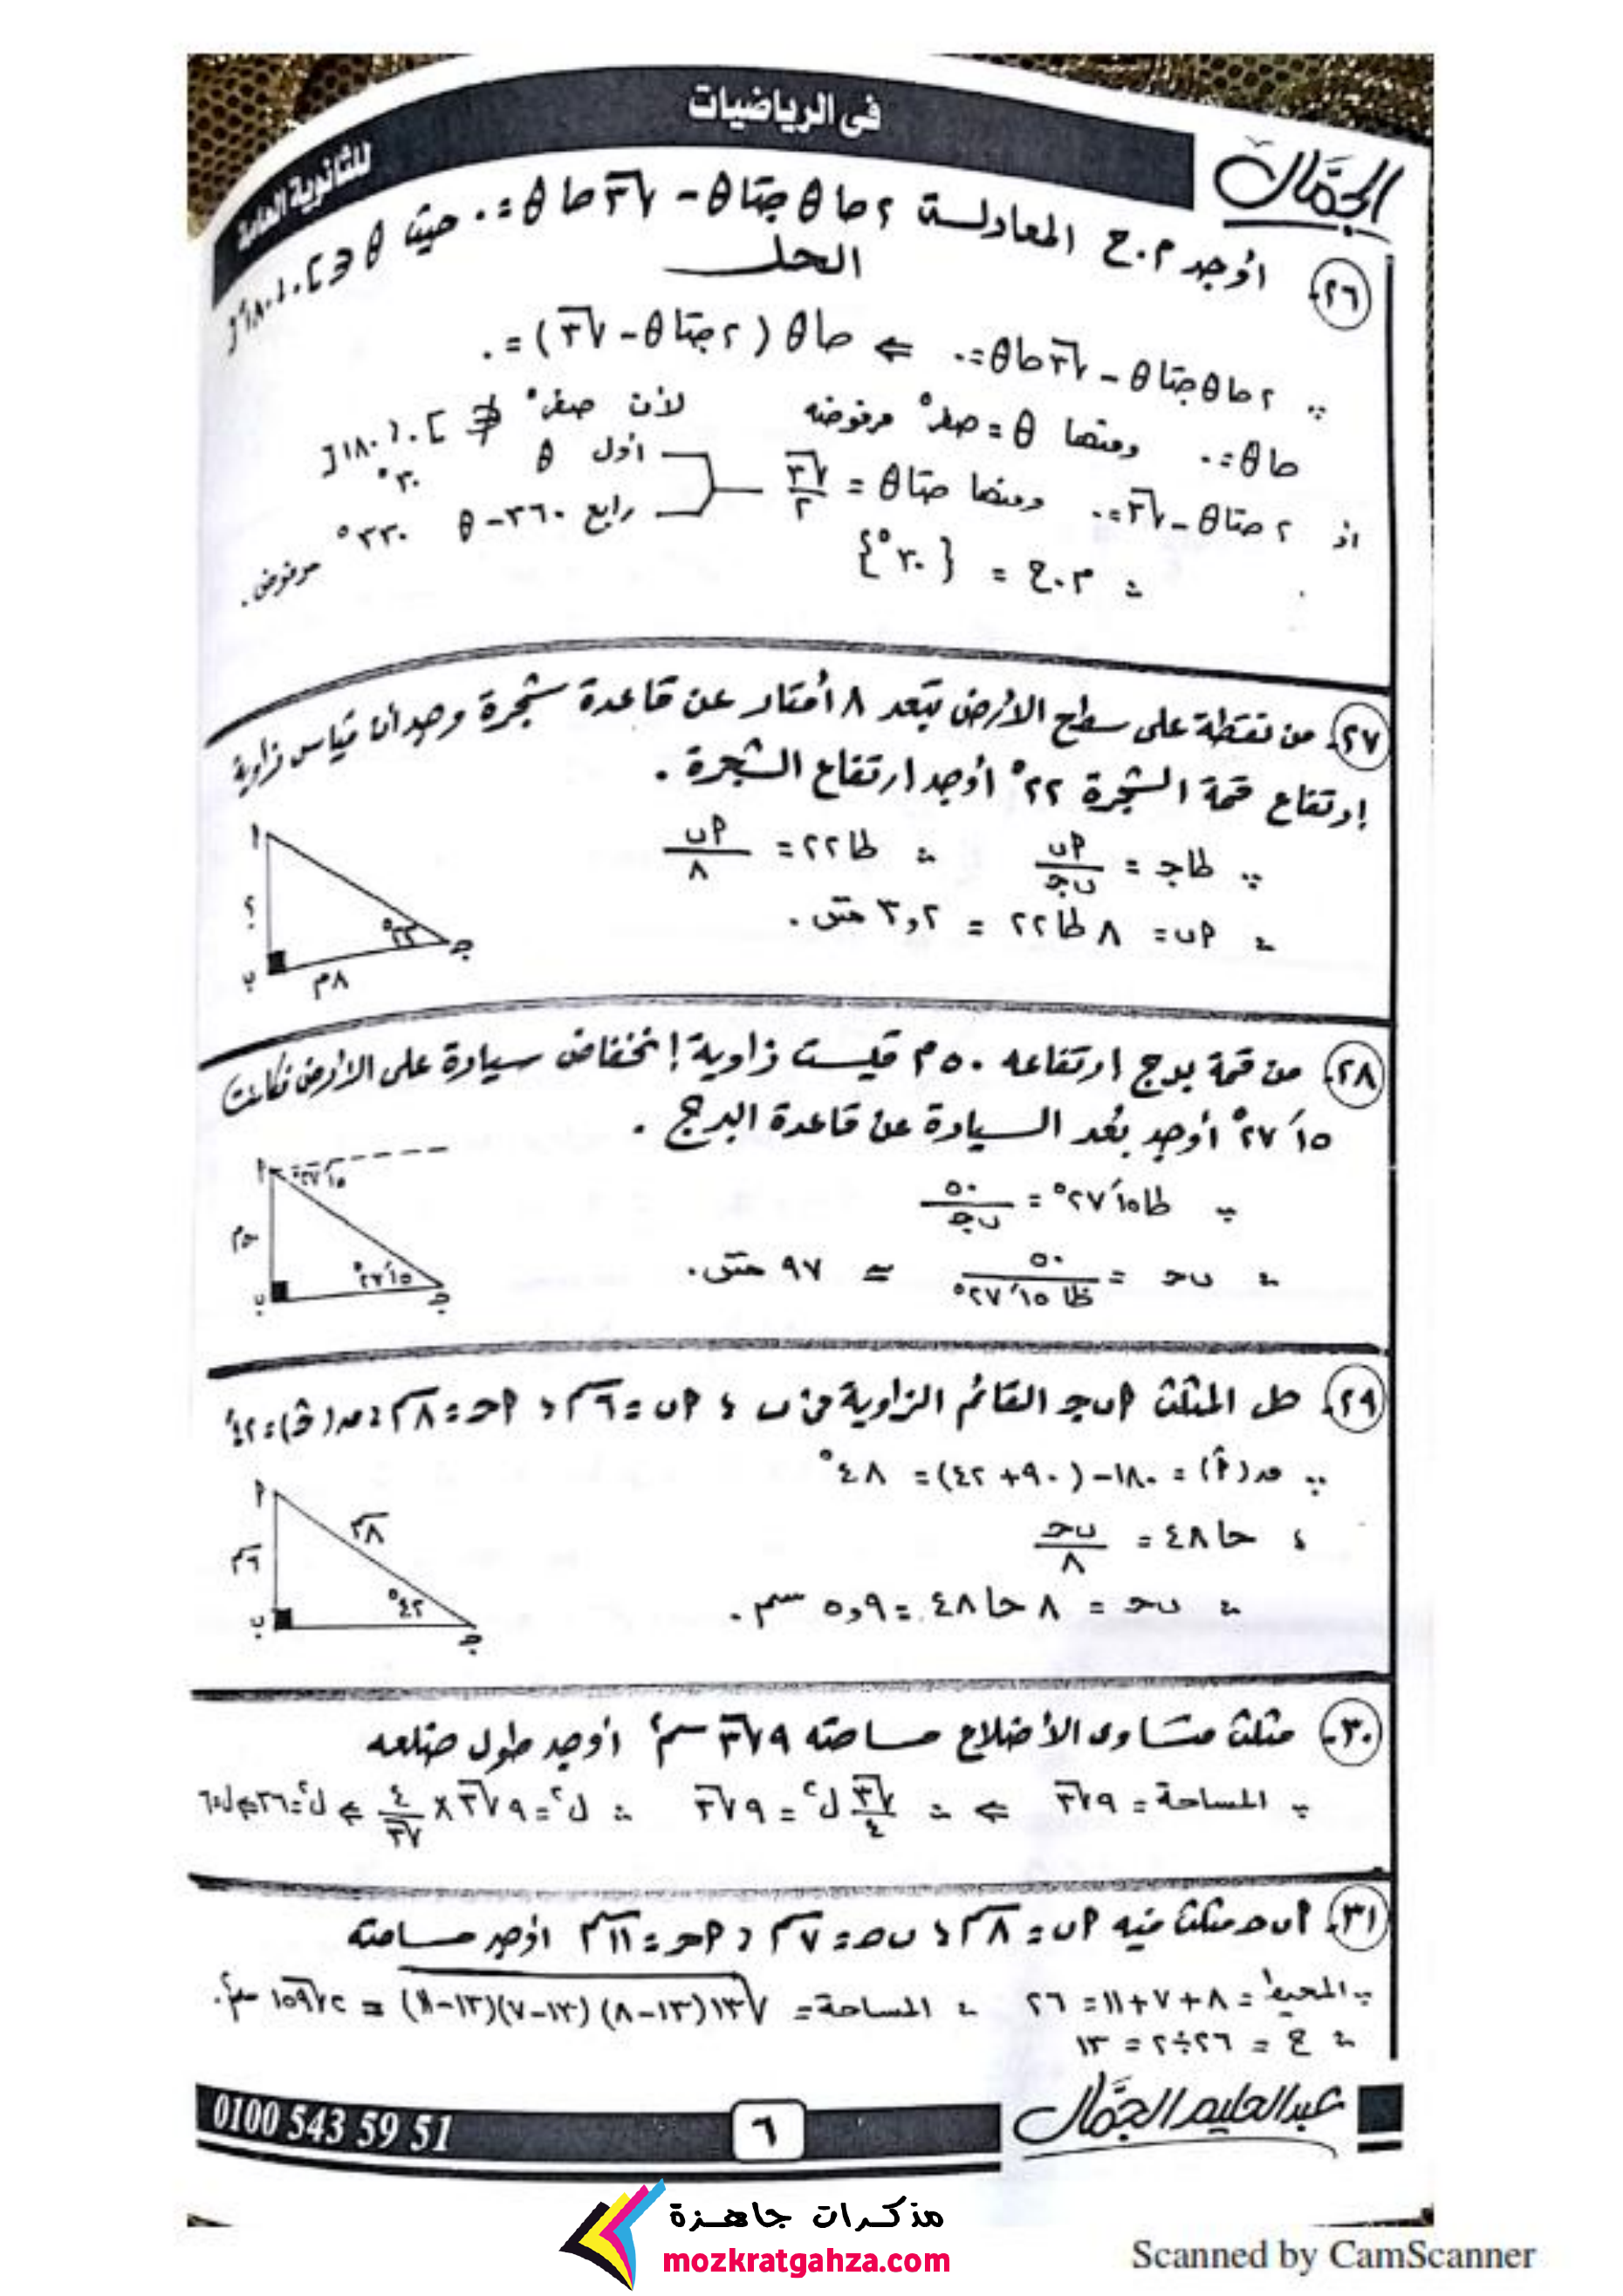 في الرياضيات
الجمال
للثانوية العامة
٢٦- أوجد م.ح المعادلة ٢ حا θ جتا θ - √٣ حا θ = ٠ حيث θ ∈ ]٠، ١٨٠°[
الحل
∵ ٢ حا θ جتا θ - √٣ حا θ = ٠ ⇐ حا θ (٢ جتا θ - √٣) = ٠
حا θ = ٠ ومنها θ = صفر° مرفوضه لأن صفر° ∉ ]٠، ١٨٠[
٢ حتا θ - √٣ = ٠ ومنها حتا θ = √٣/٢
أول θ ٣٠°
رابع ٣٦٠ - θ ٣٣٠° مرفوض.
∴ م.ح = {٣٠°}
٢٧- من نقطة على سطح الأرض تبعد ٨ أمتار عن قاعدة شجرة وجد أن قياس زاوية
إرتفاع قمة الشجرة ٢٢° أوجد ارتفاع الشجرة.
∵ طا جـ = أب/ب جـ ∴ طا ٢٢ = أب/٨
∴ أب = ٨ طا ٢٢ = ٣,٢ متر.
أ
؟
ب
٨م
٢٢°
جـ
٢٨- من قمة برج ارتفاعه ٥٠ م قيست زاوية إنخفاض سيارة على الأرض فكانت
١٥َ ٢٧° أوجد بُعد السيارة عن قاعدة البرج.
∵ طا ١٥َ ٢٧° = ٥٠/ب جـ
∴ ب جـ = ٥٠/طا ١٥َ ٢٧° ≃ ٩٧ متر.
أ
١٥َ ٢٧°
٥٠م
ب
١٥َ ٢٧°
جـ
٢٩- حل المثلث أ ب جـ القائم الزاوية فى ب ، أب = ٦سم ، أجـ = ٨سم ، ق(جـ) = ٤٢°
∵ ق(أ) = ١٨٠ - (٩٠ + ٤٢) = ٤٨°
، حا ٤٨ = ب جـ/٨
∴ ب جـ = ٨ حا ٤٨ = ٥,٩ سم.
أ
٨سم
٦سم
ب
٤٢°
جـ
٣٠- مثلث متساوى الأضلاع مساحته ٩√٣ سم٢ أوجد طول ضلعه
∵ المساحة = ٩√٣ ⇐ ∴ √٣/٤ ل٢ = ٩√٣ ∴ ل٢ = ٩√٣ × ٤/√٣ ⇐ ل٢ = ٣٦ ⇐ ل = ٦
٣١- أ ب جـ مثلث فيه أب = ٨سم ، ب جـ = ٧سم ، أجـ = ١١سم أوجد مساحته
∵ المحيط = ٨ + ٧ + ١١ = ٢٦ ∴ المساحة = √١٣(١٣-٨)(١٣-٧)(١٣-١١) = ٢√١٩٥ سم٢.
∴ ح = ٢٦ ÷ ٢ = ١٣
عبد الحليم الجمال
٦
0100 543 59 51
مذكرات جاهزة
mozkratgahza.com
Scanned by CamScanner